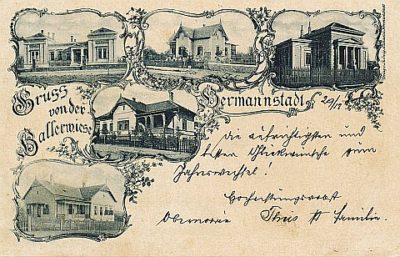 Gruss
von der
Hallerwiese
Hermannstadt, 29/12
Die aufrichtigsten und
besten Glückwünsche zum
Jahreswechsel!
Hochachtungsvoll
Familie.